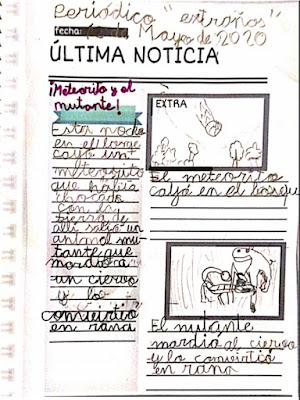 Periódico "extraños"
fecha: Mayo de 2020
ÚLTIMA NOTICIA
¡Meteorito y el
mutante!
Esta noche
en el bosque
cayó un
meteorito
que había
chocado
con la
tierra de
allí salió un
animal mu-
tante que
mordió a
un ciervo
y lo
convirtió
en rana
EXTRA
El meteorito
cayó en el bosque
El mutante
mardia al ciervo
y lo convirtió
en rana